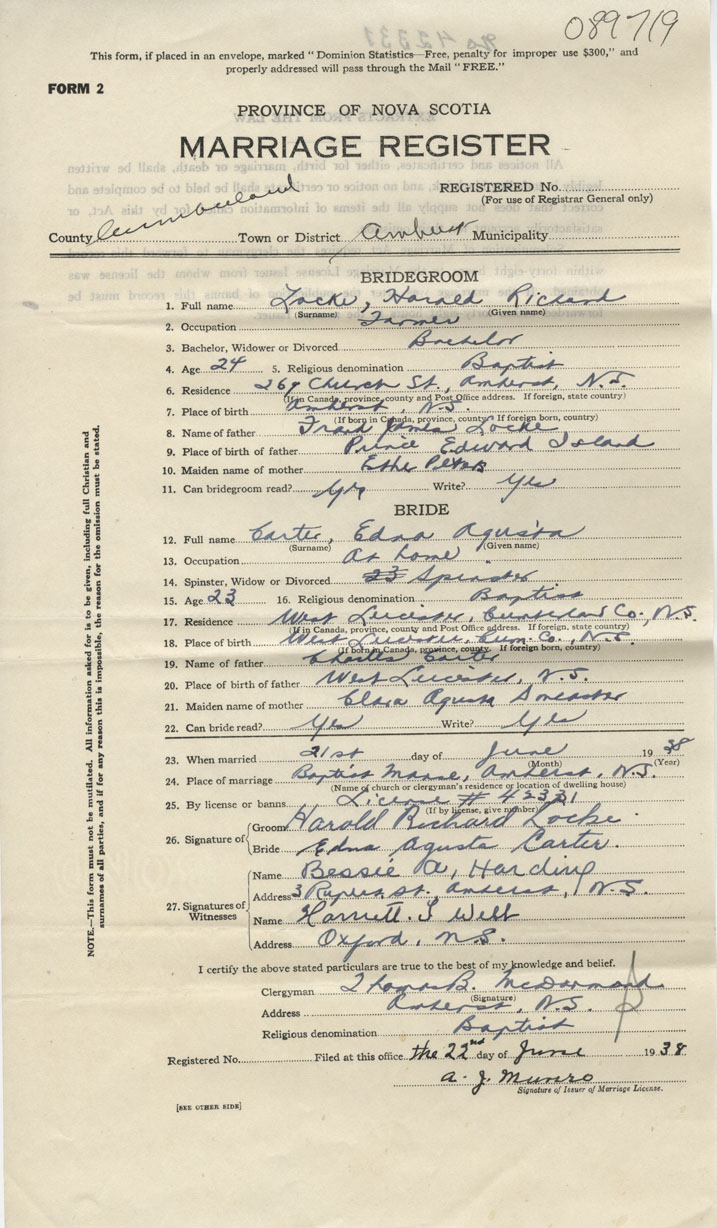 089719
This form, if placed in an envelope, marked "Dominion Statistics—Free, penalty for improper use $300," and
properly addressed will pass through the Mail "FREE."
FORM 2
PROVINCE OF NOVA SCOTIA
MARRIAGE REGISTER
REGISTERED No.
(For use of Registrar General only)
County Cumberland Town or District Amherst Municipality
BRIDEGROOM
1. Full name Locke, Harold Richard
(Surname) (Given name)
2. Occupation Farmer
3. Bachelor, Widower or Divorced Bachelor
4. Age 24 5. Religious denomination Baptist
6. Residence 269 Church St., Amherst, N.S.
(If in Canada, province, county and Post Office address. If foreign, state country)
7. Place of birth Amherst, N.S.
(If born in Canada, province, county. If foreign born, country)
8. Name of father James Locke
9. Place of birth of father Prince Edward Island
10. Maiden name of mother Peters
11. Can bridegroom read? Yes Write? Yes
BRIDE
12. Full name Carter, Edna Agusta
(Surname) (Given name)
13. Occupation At home
14. Spinster, Widow or Divorced 23 Spinster
15. Age 23 16. Religious denomination Baptist
17. Residence West Leicester, Cumberland Co., N.S.
(If in Canada, province, county and Post Office address. If foreign, state country)
18. Place of birth West Leicester, Cum. Co., N.S.
(If born in Canada, province, county. If foreign born, country)
19. Name of father Charles Carter
20. Place of birth of father West Leicester, N.S.
21. Maiden name of mother Clara Agusta Doncaster
22. Can bride read? Yes Write? Yes
23. When married 21st day of June 1938
(Month) (Year)
24. Place of marriage Baptist Manse, Amherst, N.S.
(Name of church or clergyman's residence or location of dwelling house)
25. By license or banns License # 42331
(If by license, give number)
26. Signature of
Groom Harold Richard Locke
Bride Edna Agusta Carter.
27. Signatures of Witnesses
Name Bessie A. Harding
Address 3 Rupert St. Amherst, N.S.
Name Harriett. I
Address Oxford, N.S.
I certify the above stated particulars are true to the best of my knowledge and belief.
Clergyman Thomas B. McDormand
(Signature)
Address Amherst, N.S.
Religious denomination Baptist
Registered No. Filed at this office the 22nd day of June 1938
A. J. Munro
Signature of Issuer of Marriage License.
[SEE OTHER SIDE]
NOTE.—This form must not be mutilated. All information asked for is to be given, including full Christian and
surnames of all parties, and if for any reason this is impossible, the reason for the omission must be stated.